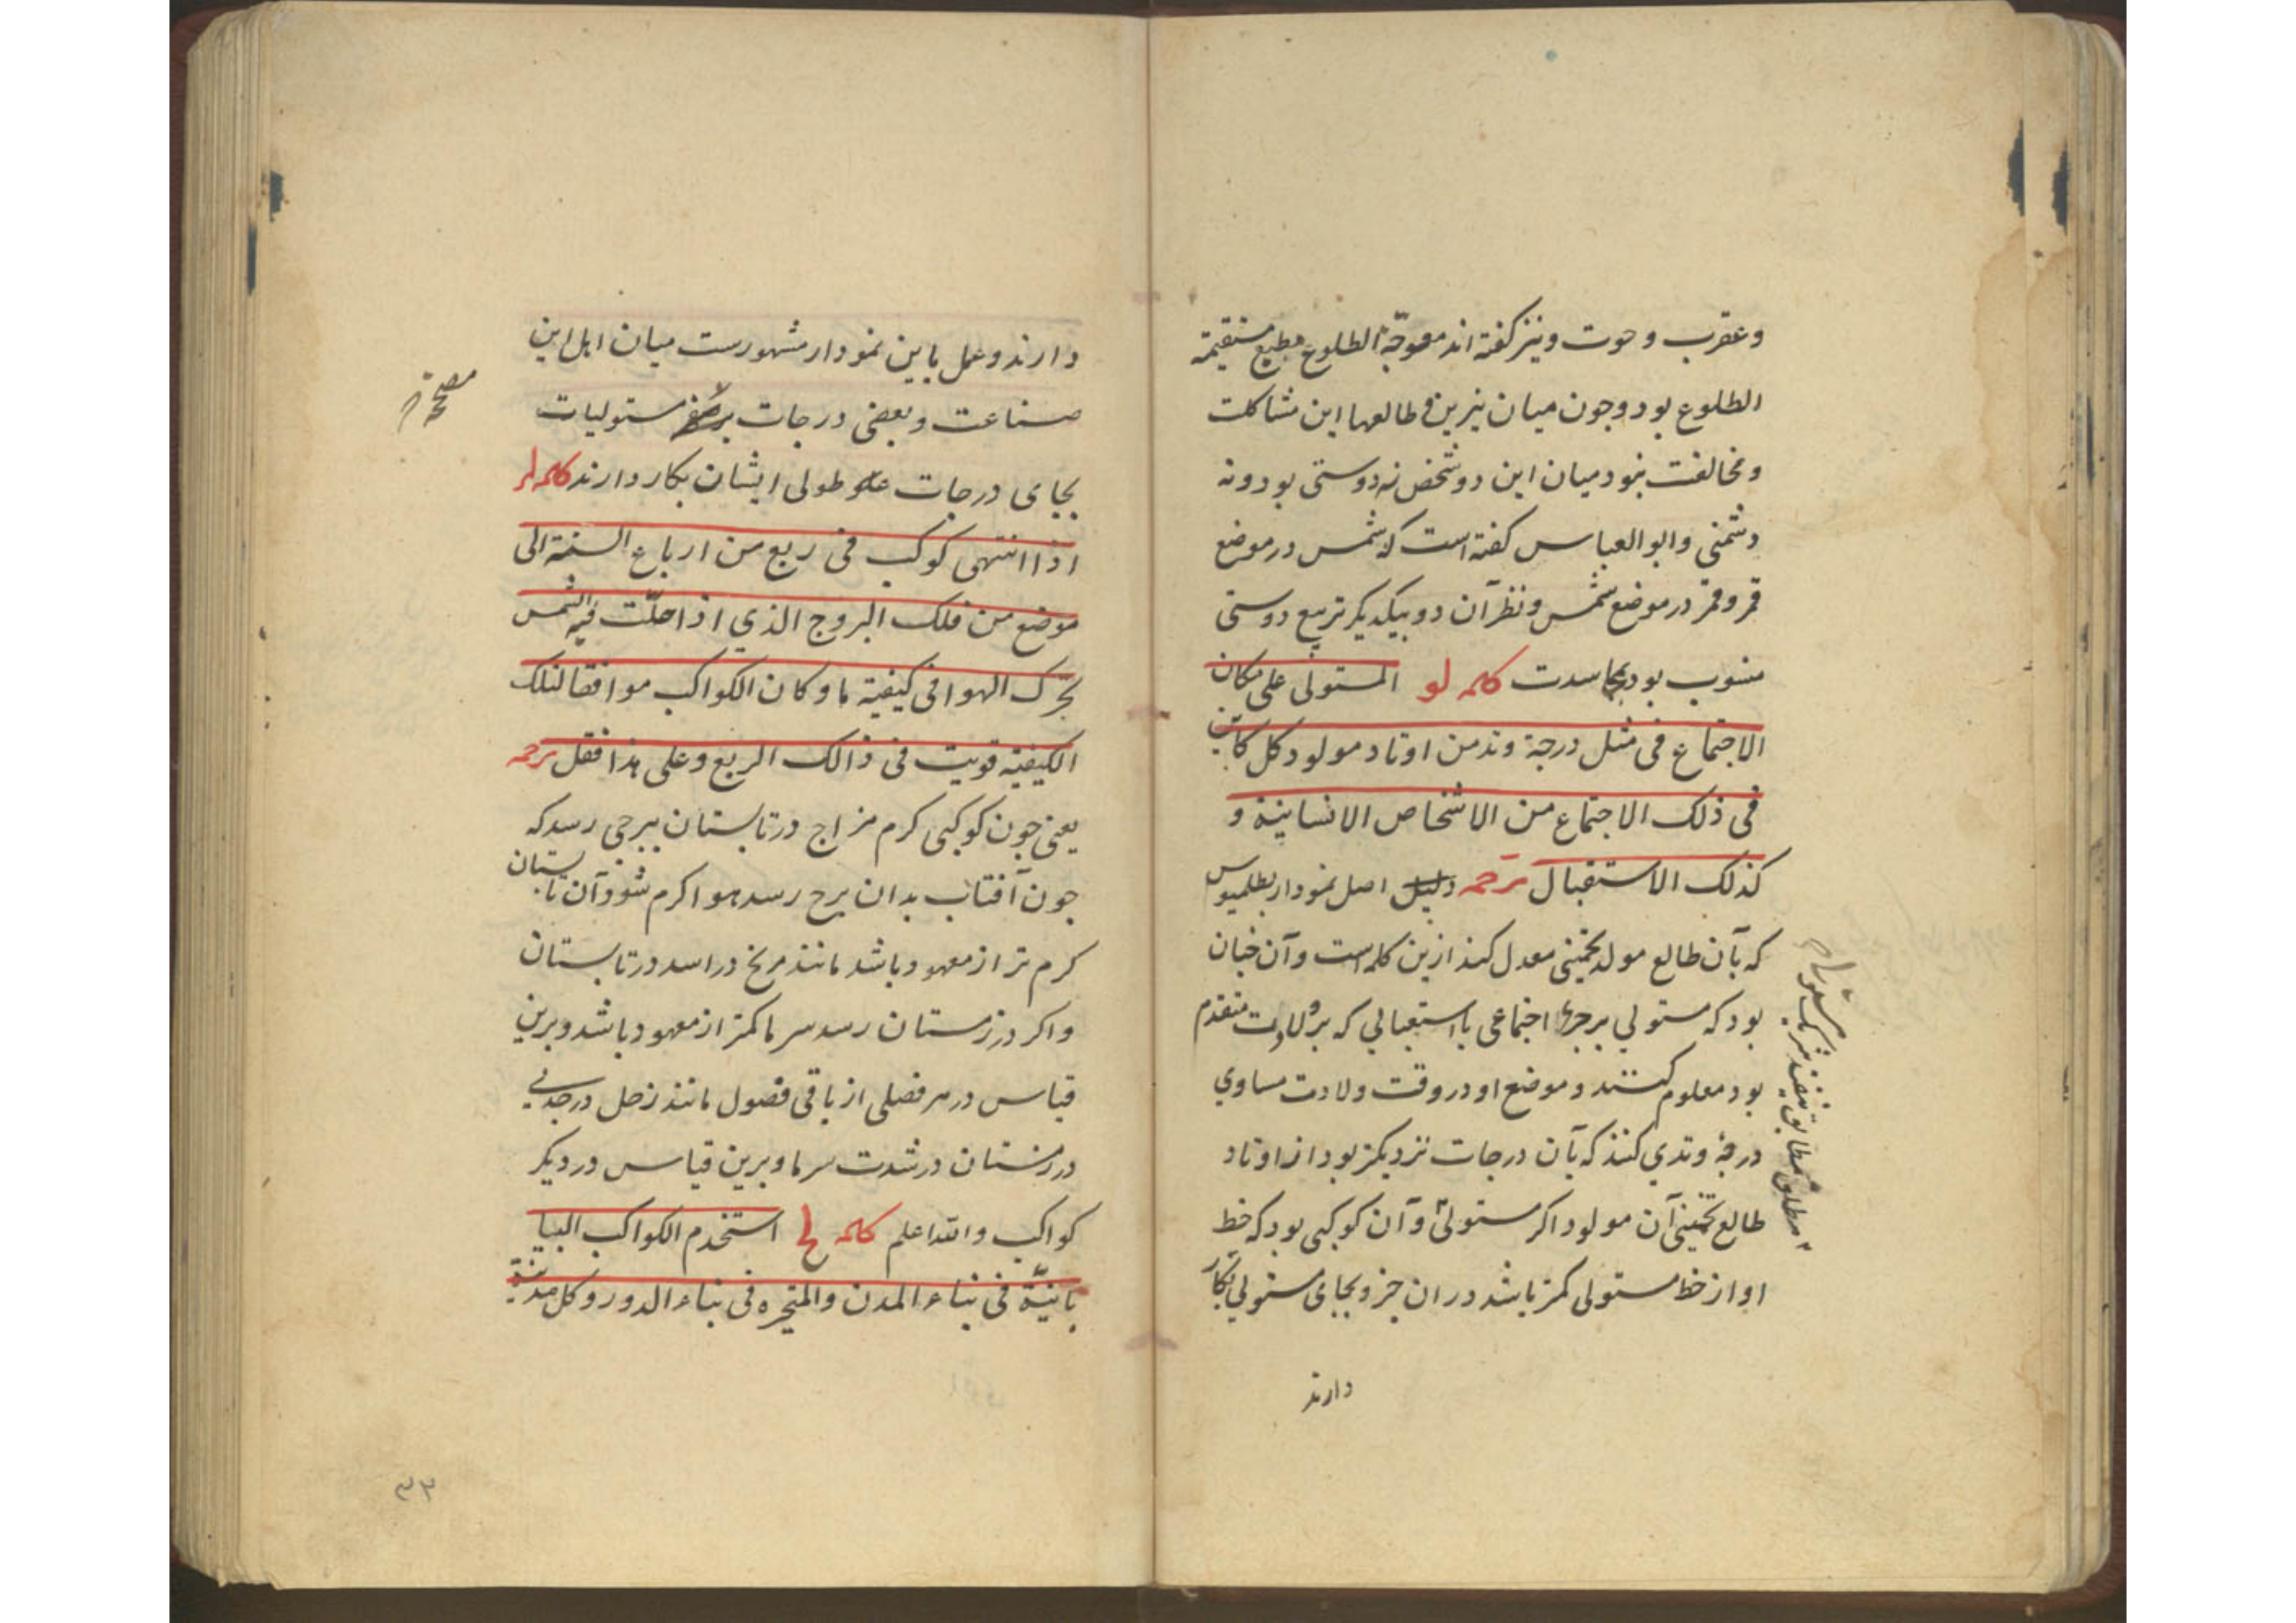 وعقرب و حوت و نیز کفته اند معوجّة الطلوع مطیع مستقیمة
الطلوع بود و جون میان نیرین و طالعها این مشاکلت
و مخالفت نبود میان این دو شخص نه دوستی بود و نه
دشمنی و ابو العباس کفته است که شمس در موضع
قمر و قمر در موضع شمس و نظر آن دو بیکدیکر تربیع دوستی
منسوب بود بحاسدت کلمه لو المستولی علی مکان
الاجتماع فی مثل درجة وتد من اوتاد مولود کل کاین
فی ذلک الاجتماع من الاشخاص الانسانیة و
کذلک الاستقبال ترجمه دلیل اصل نمودار بطلمیوس
که بآن طالع مولد تخمینی معدل کنند ازین کلمه است و آن جنان
بود که مستولی بر جزء اجتماعی یا استقبالی که بر ولادت متقدم
بود معلوم کنند و موضع او در وقت ولادت مساوی
درجهٔ وتدی کنند که بآن درجات نزدیکتر بود از اوتاد
طالع تخمینی آن مولود اکر مستولی و آن کوکبی بود که خط
او از خط مستولی کمتر باشد در ان جزو بجای مستولی بکار
دارند
مطابق
دارند و عمل باین نمودار مشهورست میان اهل این
صناعت و بعضی درجات مستولیات
بجای درجات طولی ایشان بکار دارند کلمه لز
اذا انتهی کوکب فی ربع من ارباع السنة الی
موضع من فلک البروج الذی اذا حلّت فیه الشمس
تحرّک الهوا فی کیفیة ما و کان الکواکب موافقا لتلک
الکیفیة قویت فی ذالک الربع و علی هذا فقل ترجمه
یعنی جون کوکبی کرم مزاج در تابستان ببرجی رسد که
جون آفتاب بدان برج رسد هوا کرم شود آن تابستان
کرم تر از معهود باشد مانند مریخ در اسد در تابستان
و اکر در زمستان رسد سرما کمتر از معهود باشد و برین
قیاس در هر فصلی از باقی فصول مانند زحل در جدی
در زمستان در شدت سرما و برین قیاس در دیکر
کواکب و الله اعلم کلمه لح استخدم الکواکب البیا
بانیّة فی بناء المدن و المتحیره فی بناء الدور و کل مدینة
۳۳